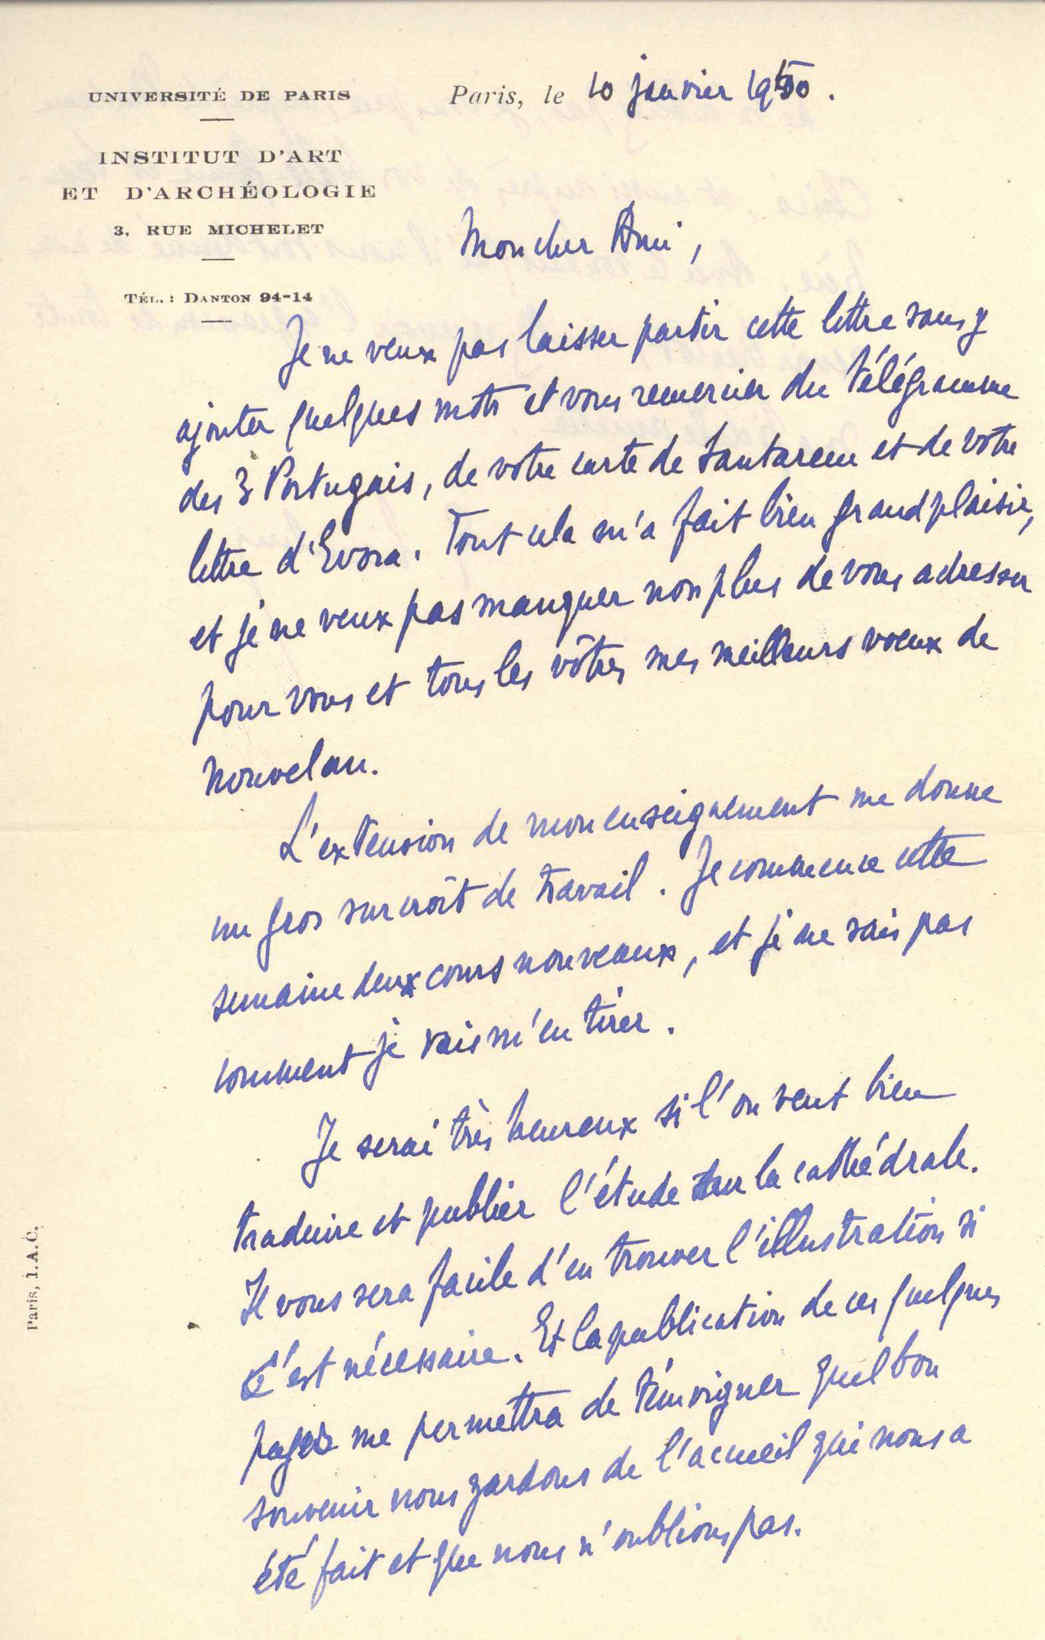 UNIVERSITÉ DE PARIS
INSTITUT D'ART
ET D'ARCHÉOLOGIE
3, RUE MICHELET
TÉL. : DANTON 94-14
Paris, le 10 janvier 1950.
Mon cher Ami,
Je ne veux pas laisser partir cette lettre sans y
ajouter quelques mots et vous remercier du télégramme
des 3 Portugais, de votre carte de Santarem et de votre
lettre d'Evora. Tout cela m'a fait bien grand plaisir,
et je ne veux pas manquer non plus de vous adresser
pour vous et tous les vôtres mes meilleurs voeux de
nouvel an.
L'extension de mon enseignement me donne
un gros surcroît de travail. Je commence cette
semaine deux cours nouveaux, et je ne sais pas
comment je vais m'en tirer.
Je serai très heureux si l'on veut bien
traduire et publier l'étude sur la cathédrale.
Il vous sera facile d'en trouver l'illustration si
c'est nécessaire. Et la publication de ces quelques
pages me permettra de témoigner quel bon
souvenir nous gardons de l'accueil qui nous a
été fait et que nous n'oublions pas.
Paris, I.A.C.